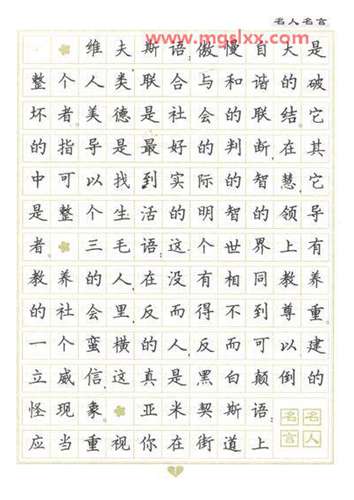 名人名言
www.mgslxx.com
维夫斯语:傲慢自大是
整个人类联合与和谐的破
坏者。美德是社会的联结。它
的指导是最好的判断,在其
中可以找到实际的智慧,它
是整个生活的明智的领导
者。三毛语:这个世界上有
教养的人,在没有相同教养
的社会里,反而得不到尊重。
一个蛮横的人,反而可以建
立威信,这真是黑白颠倒的
怪现象。亚米契斯语:
应当重视你在街道上
名人
名言